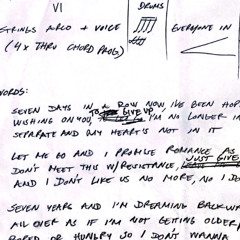 VI
DRUMS
STRINGS ARCO + VOICE
EVERYONE IN
(4X THRU CHORD PROG)
WORDS:
SEVEN DAYS IN A ROW NOW, I'VE BEEN HOP
TO GIVE UP
WISHING ON YOU, I'M NO LONGER IN
SEPARATE AND MY HEART'S NOT IN IT
LET ME GO AND I PROMISE ROMANCE AS
JUST GIVE
DON'T MEET THIS W/RESISTANCE,
AND I DON'T LIKE US NO MORE, NO I DO
SEVEN YEARS AND I'M DREAMING BACKWA
ALL OVER AS IF I'M NOT GETTING OLDER
BORED OR HUNGRY SO I DON'T WANNA